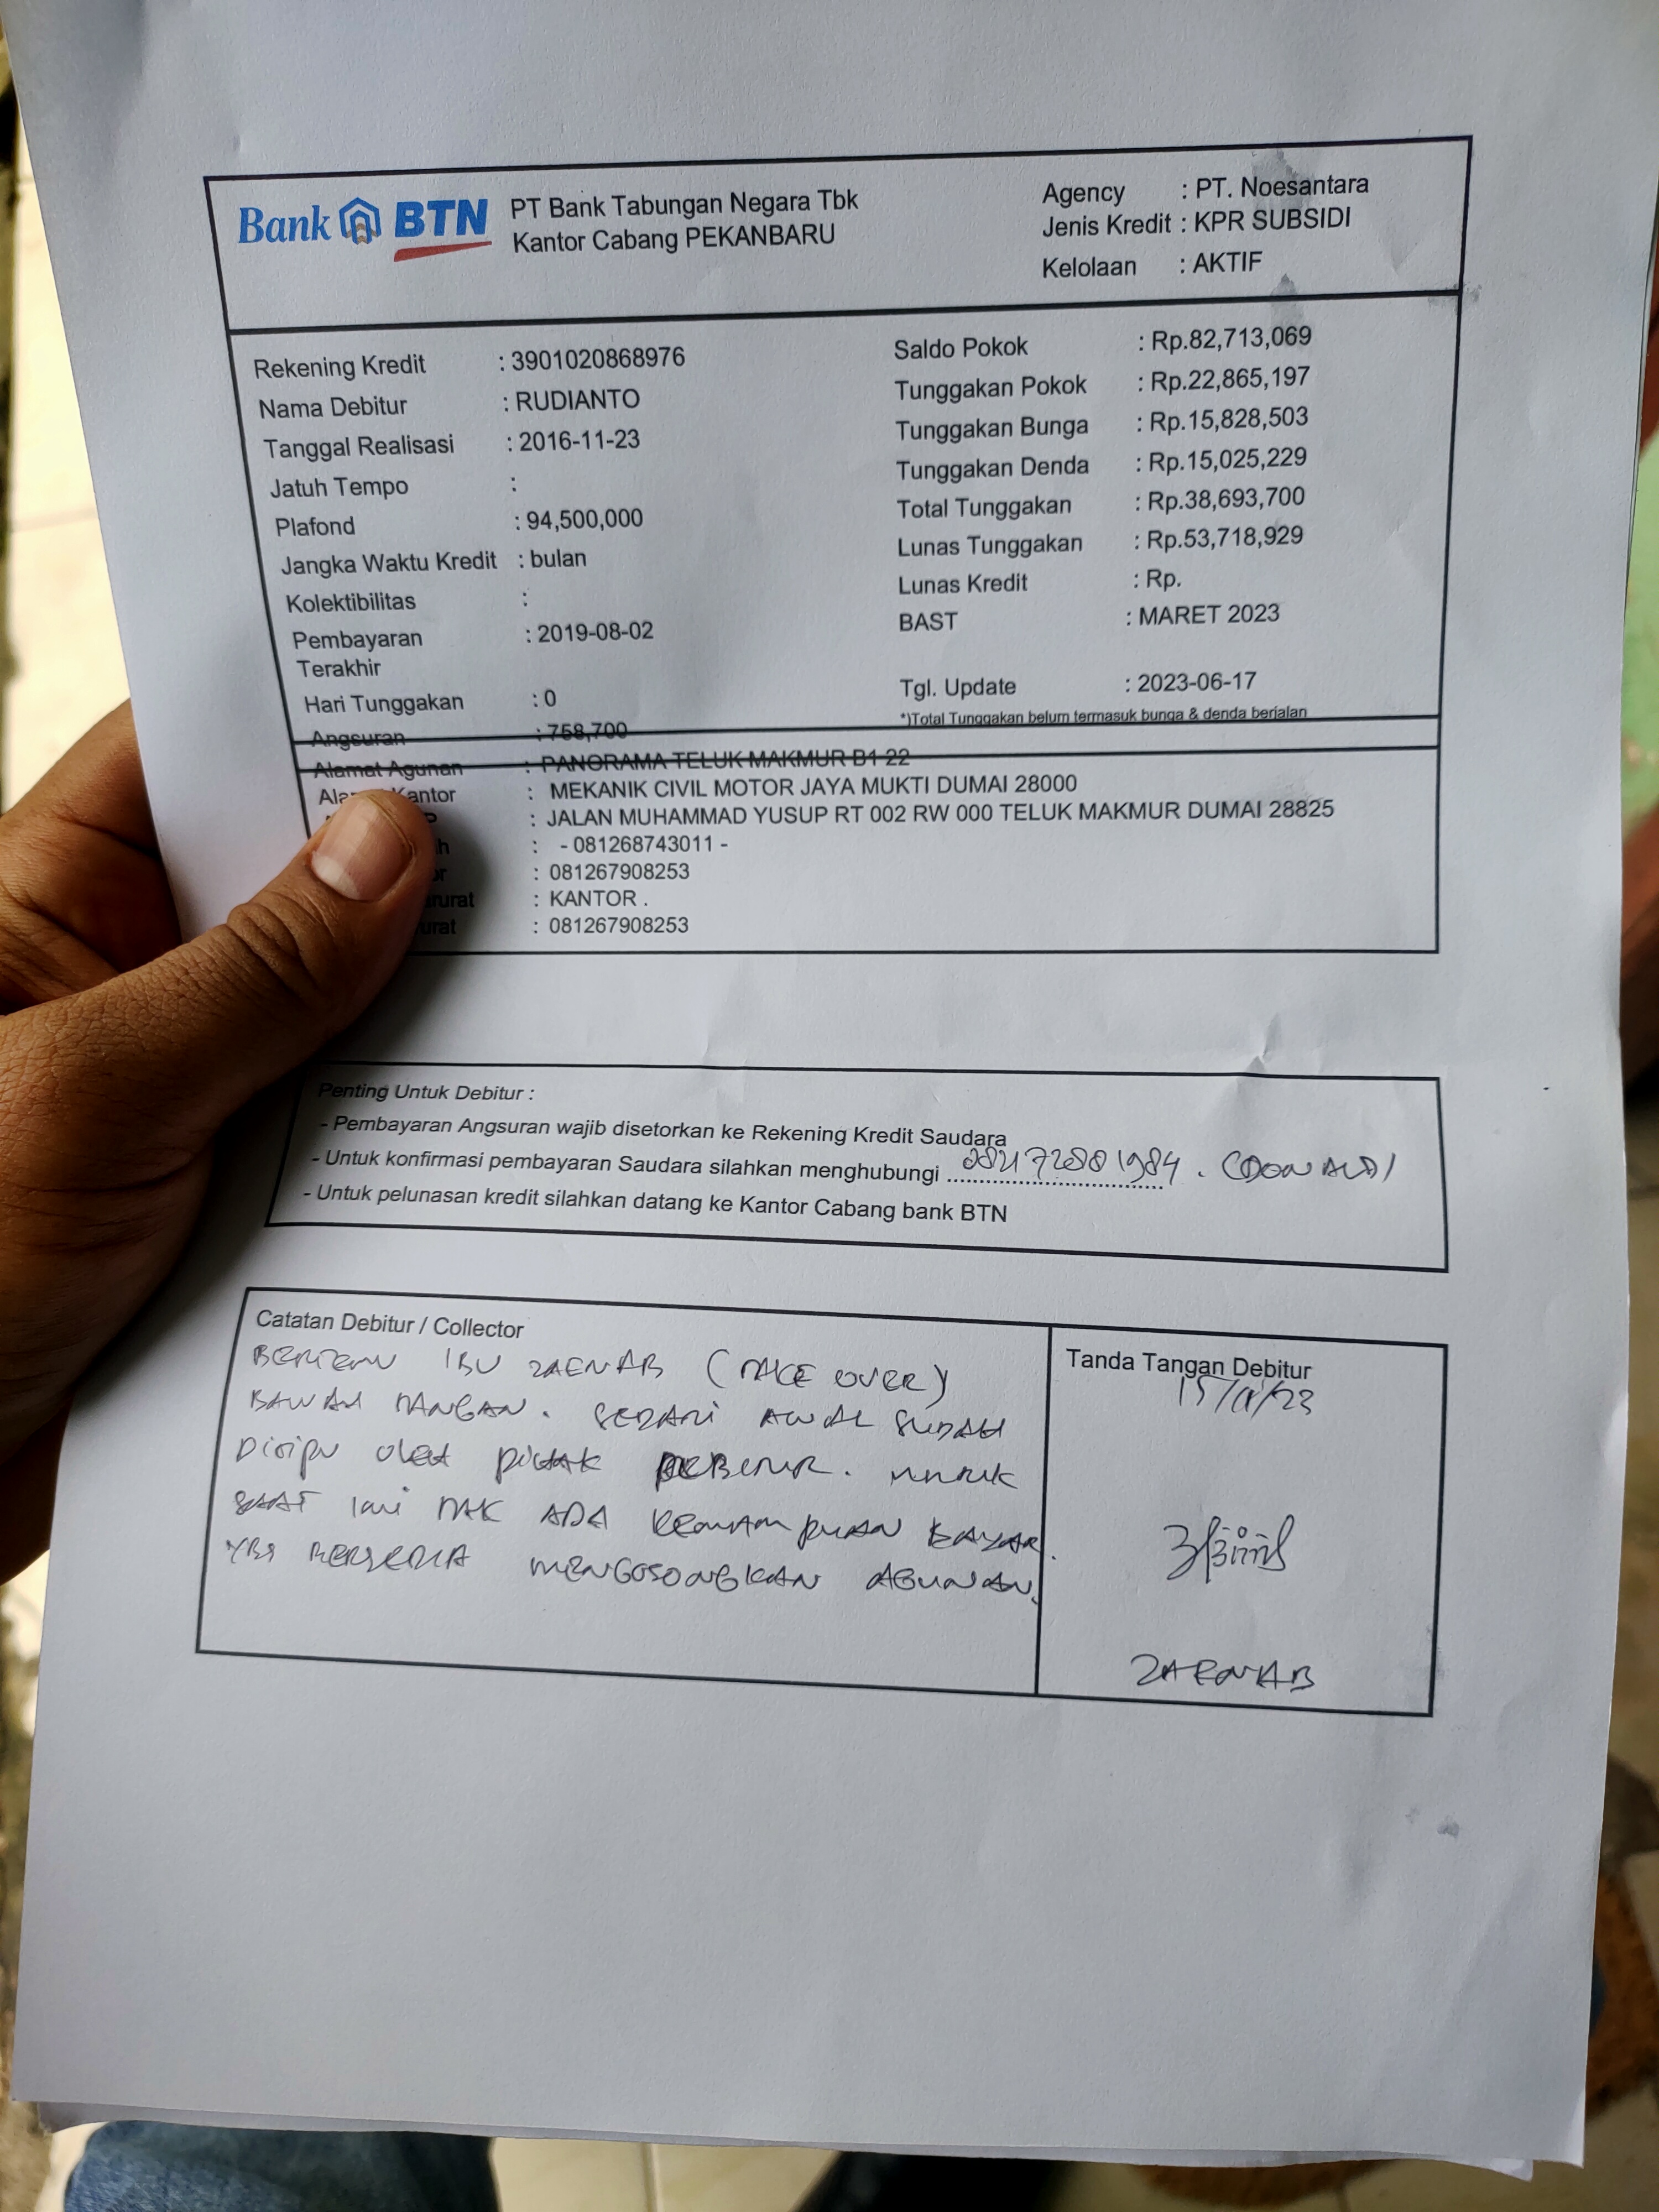 Bank BTN
PT Bank Tabungan Negara Tbk
Kantor Cabang PEKANBARU
Agency : PT. Noesantara
Jenis Kredit : KPR SUBSIDI
Kelolaan : AKTIF
Rekening Kredit : 3901020868976
Nama Debitur : RUDIANTO
Tanggal Realisasi : 2016-11-23
Jatuh Tempo :
Plafond : 94,500,000
Jangka Waktu Kredit : bulan
Kolektibilitas :
Pembayaran : 2019-08-02
Terakhir
Hari Tunggakan : 0
Angsuran : 758,700
Saldo Pokok : Rp.82,713,069
Tunggakan Pokok : Rp.22,865,197
Tunggakan Bunga : Rp.15,828,503
Tunggakan Denda : Rp.15,025,229
Total Tunggakan : Rp.38,693,700
Lunas Tunggakan : Rp.53,718,929
Lunas Kredit : Rp.
BAST : MARET 2023
Tgl. Update : 2023-06-17
*)Total Tunggakan belum termasuk bunga & denda berjalan
Alamat Agunan : PANORAMA TELUK MAKMUR B1 22
Kantor : MEKANIK CIVIL MOTOR JAYA MUKTI DUMAI 28000
: JALAN MUHAMMAD YUSUP RT 002 RW 000 TELUK MAKMUR DUMAI 28825
: - 081268743011 -
: 081267908253
: KANTOR .
: 081267908253
Penting Untuk Debitur :
- Pembayaran Angsuran wajib disetorkan ke Rekening Kredit Saudara
- Untuk konfirmasi pembayaran Saudara silahkan menghubungi 082172801984 . (DONALD)
- Untuk pelunasan kredit silahkan datang ke Kantor Cabang bank BTN
Catatan Debitur / Collector
BERTEMU IBU ZAENAB (TAKE OVER)
BAWAH TANGAN. SEDARI AWAL SUDAH
DITIPU OLEH PIHAK DEBITUR. UNTUK
SAAT INI TAK ADA KEMAMPUAN BAYAR.
YBS BERSEDIA MENGOSONGKAN AGUNAN.
Tanda Tangan Debitur
ZAENAB